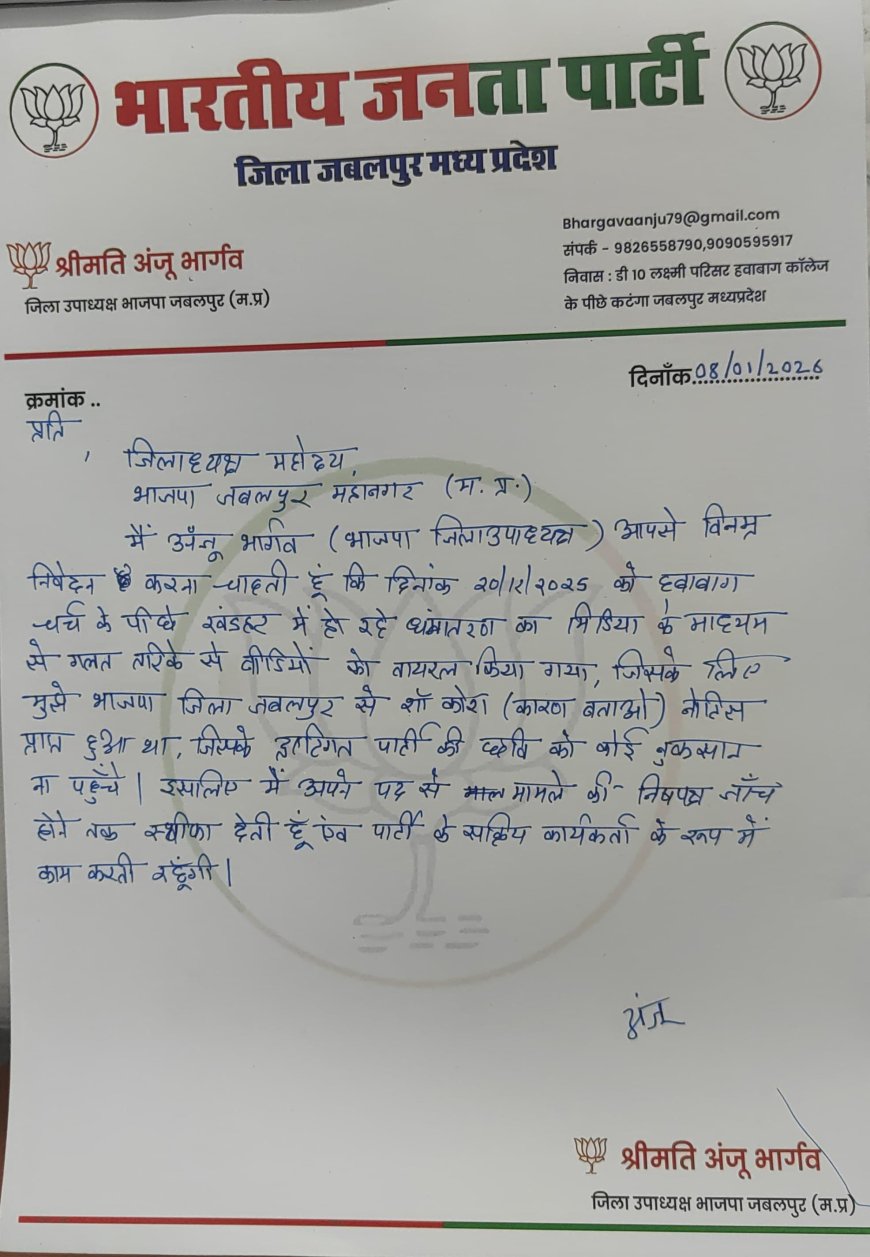 भारतीय जनता पार्टी
जिला जबलपुर मध्य प्रदेश
श्रीमति अंजू भार्गव
जिला उपाध्यक्ष भाजपा जबलपुर (म.प्र)
Bhargavaanju79@gmail.com
संपर्क - 9826558790,9090595917
निवास : डी 10 लक्ष्मी परिसर हवाबाग कॉलेज
के पीछे कटंगा जबलपुर मध्यप्रदेश
दिनाँक 08/01/2026
क्रमांक ..
प्रति
, जिलाध्यक्ष महोदय,
भाजपा जबलपुर महानगर (म. प्र.)
मैं अँजू भार्गव (भाजपा जिलाउपाध्यक्ष) आपसे विनम्र
निवेदन करना चाहती हूं कि दिनांक २०/१२/२०२५ को हवाबाग
चर्च के पीछे खंडहर में हो रहे धंमातरण का मिडिया के माध्यम
से गलत तरिके से वीडियों को वायरल किया गया, जिसके लिए
मुझे भाजपा जिला जबलपुर से शॉ कोश (कारण बताओ) नोटिस
प्राप्त हुआ था, जिसके पार्टी की छवि को कोई नुकसान
ना पहुँचे | इसलिए में अपने पद से मामले की निषपक्ष जाँच
होने तक स्थीफा देती हूँ एंव पार्टी के सक्रिय कार्यकर्ता के रूप में
काम करती रहूँगी |
अंजू
श्रीमति अंजू भार्गव
जिला उपाध्यक्ष भाजपा जबलपुर (म.प्र)